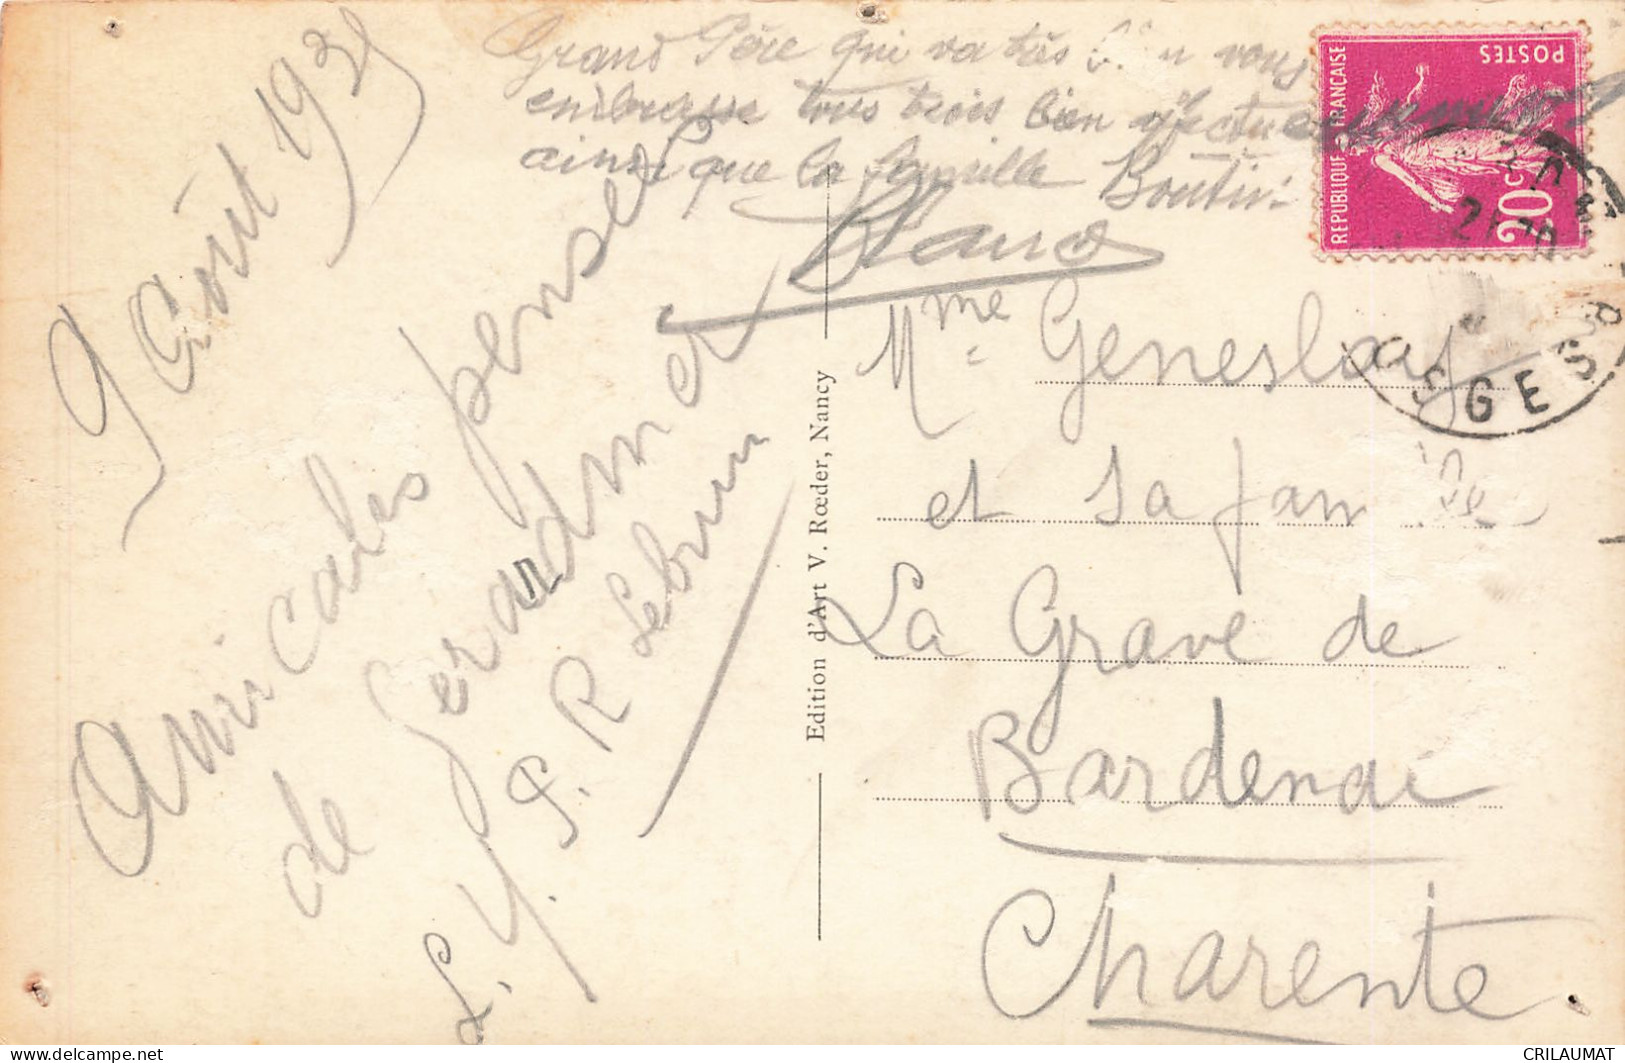 9 Août 193
Grand Père qui va très bien vous
embrasse tous trois bien affectueusement
ainsi que la famille Boutin.
Amicales pensées
de Gerardmer
L. Y. P. R Lebrun
Edition d'Art V. Rœder, Nancy
REPUBLIQUE FRANÇAISE
POSTES
20c
SGES
Mme Geneslay
et sa famille
La Grave de
Bardenac
Charente
delcampe.net
CRILAUMAT